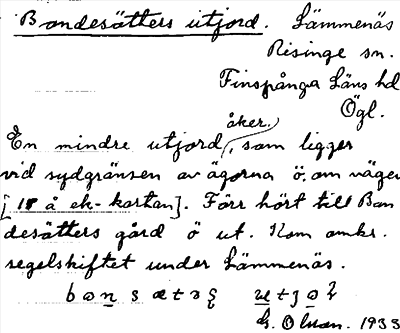 Bondesätters utjord. Lämmenäs
Risinge sn.
Finspånga Läns hd
Ögl.
åker.
En mindre utjord, som ligger
vid sydgränsen av ägorna ö. om vägen
[18 å ek-kartan]. Förr hört till Bon
desätters gård ö ut. Kom omkr.
segelskiftet under Lämmenäs.
1933